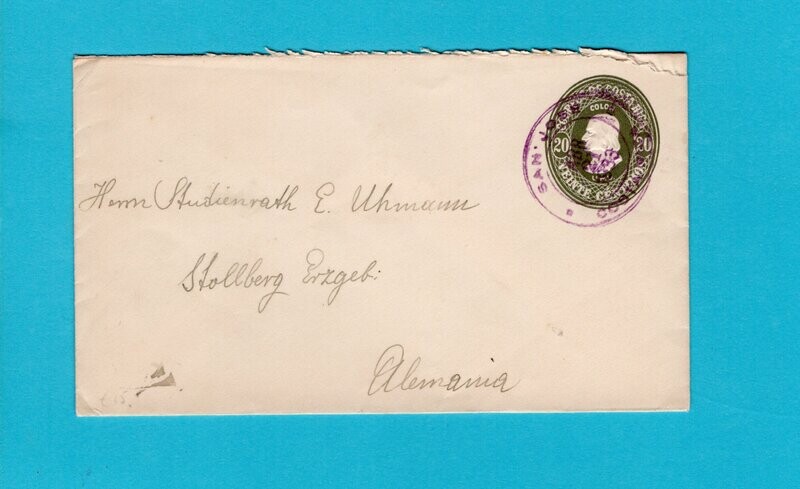 COSTA RICA
COLON
20 20
VEINTE CENTIMOS
SAN JOSE
Herrn Studienrath E. Uhmann
Stollberg Erzgeb:
Alemania